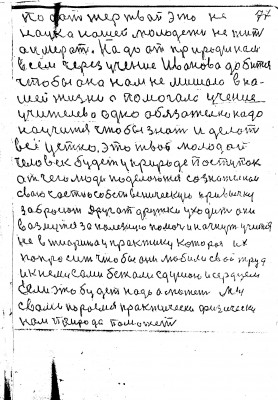 77
по дат жертвай это не
наука нашей молодежи не пит
а умерат. Надо от природи нам
всем через учение Иванова добится
чтобы она нам не мишала в на-
шей жизни а помогала учение
учителево одно обязательно надо
научится чтобы знат и делат
всё четко, это твой молодой
человек будет у природе поступок
от чего люди поделаются сознательно
свою частнособственическую привычку
забросют друг от дружки уходит они
возмутся за полезную помоч и начнут учится
не в теории а у практику которая их
попросит чтобы они любили свой труд
и к ней сами бежали с душою и сердцем
Если это будет надо а может мы
своими порами практически физически
нам природа поможет